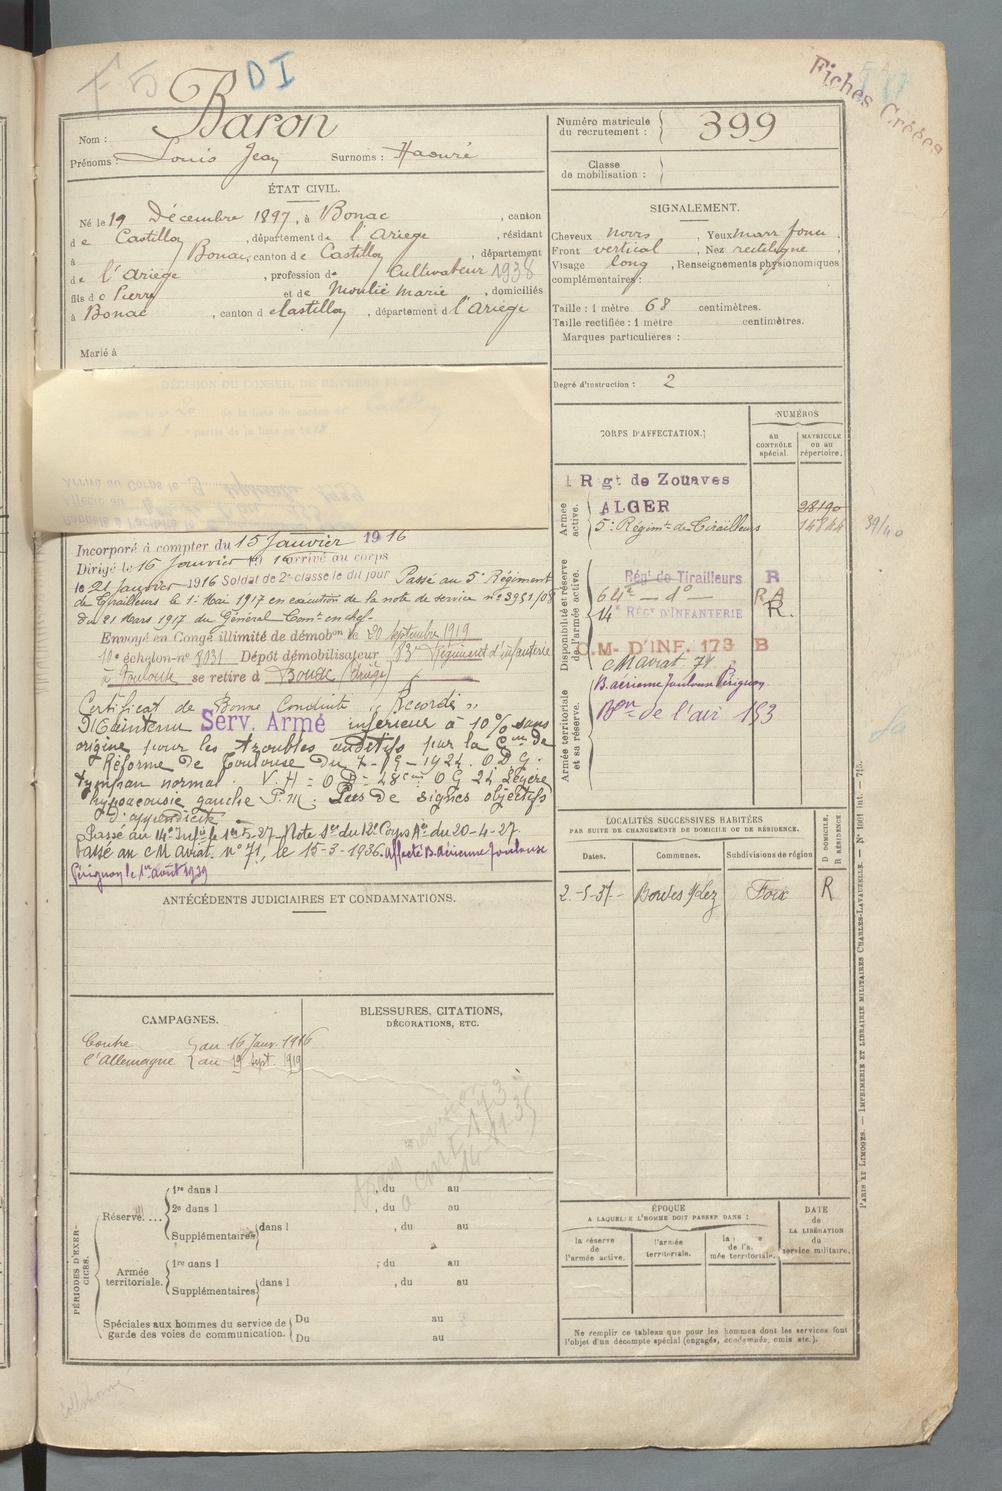 F 5
DI
Fiches Créées
Baron
Nom :
Prénoms : Louis Jean Surnoms : Haouré
Numéro matricule du recrutement : 399
Classe de mobilisation :
ÉTAT CIVIL.
Né le 19 Décembre 1897, à Bonac, canton
de Castillon, département de l'Ariège, résidant
à Bonac, canton de Castillon, département
de l'Ariège, profession de Cultivateur 1938
fils de Pierre et de Moulié Marie, domiciliés
à Bonac, canton de Castillon, département de l'Ariège
Marié à
SIGNALEMENT.
Cheveux noirs, Yeux marr foncé.
Front vertical, Nez rectiligne,
Visage long, Renseignements physionomiques
complémentaires :
Taille : 1 mètre 68 centimètres.
Taille rectifiée : 1 mètre centimètres.
Marques particulières :
Degré d'instruction : 2
CORPS D'AFFECTATION.
NUMÉROS
au CONTRÔLE spécial.
MATRICULE ou au répertoire.
Armée active.
1 Rgt de Zouaves
ALGER 28190
5e Régimt de Tirailleurs
39/40
Disponibilité et réserve de l'armée active.
Régt de Tirailleurs R
64e — do — RA
14e RÉGt D'INFANTERIE R.
C.M- D'INF. 173 B
CM aviat. 71
Armée territoriale et sa réserve.
B. aérienne Toulouse Pérignon
Bon de l'air 153
Incorporé à compter du 15 Janvier 1916
Dirigé le 16 Janvier 1916 arrivé au corps
le 21 Janvier 1916 Soldat de 2e classe le dit jour Passé au 5e Régiment
de Tirailleurs le 1er Mai 1917 en exécution de la note de service no 3951/08
du 21 Mars 1917 du Général Comt en chef.
Envoyé en Congé illimité de démobon le 20 Septembre 1919
10e échelon-no 8031 Dépôt démobilisateur 83e Régiment d'infanterie
à Toulouse se retire à Bonac (Ariège)
Certificat de Bonne Conduite "Accordé"
Maintenu Serv. Armé inférieur à 10% sans
origine pour les troubles auditifs par la Con de
Réforme de Toulouse du O D G.
tympan normal. V.H = O D = 28cm O G 24 Légère
hypoacousie gauche P.M : Pas de signes objectifs
d'appendicite
Passé au 14e Infie le 1er 5-27 Note Sce du 12e Corps Ae du 20-4-27.
Passé au CM Aviat. no 71, le 15-3-1936. Affecté B. Aérienne Toulouse
Pérignon le 1er Août 1939
LOCALITÉS SUCCESSIVES HABITÉES
PAR SUITE DE CHANGEMENTS DE DOMICILE OU DE RÉSIDENCE.
Dates. Communes. Subdivisions de région D DOMICILE, R RÉSIDENCE
2-5-37 Bordes s/Lez Foix R
ANTÉCÉDENTS JUDICIAIRES ET CONDAMNATIONS.
CAMPAGNES.
Contre l'Allemagne
du 16 Janv. 1916
au 19 Sept. 1919
BLESSURES, CITATIONS,
DÉCORATIONS, ETC.
PÉRIODES D'EXERCICES.
Réserve....
1re dans l , du au
2e dans l , du au
Supplémentaires dans l , du au
Armée territoriale.
1re dans l , du au
Supplémentaires dans l , du au
Spéciales aux hommes du service de garde des voies de communication.
Du au
Du au
ÉPOQUE
A LAQUELLE L'HOMME DOIT PASSER DANS :
la réserve de l'armée active.
l'armée territoriale.
DATE de LA LIBÉRATION du service militaire.
Ne remplir ce tableau que pour les hommes dont les services font
l'objet d'un décompte spécial (engagés, condamnés, omis etc.).
PARIS ET LIMOGES. — IMPRIMERIE ET LIBRAIRIE MILITAIRES CHARLES-LAVAUZELLE.